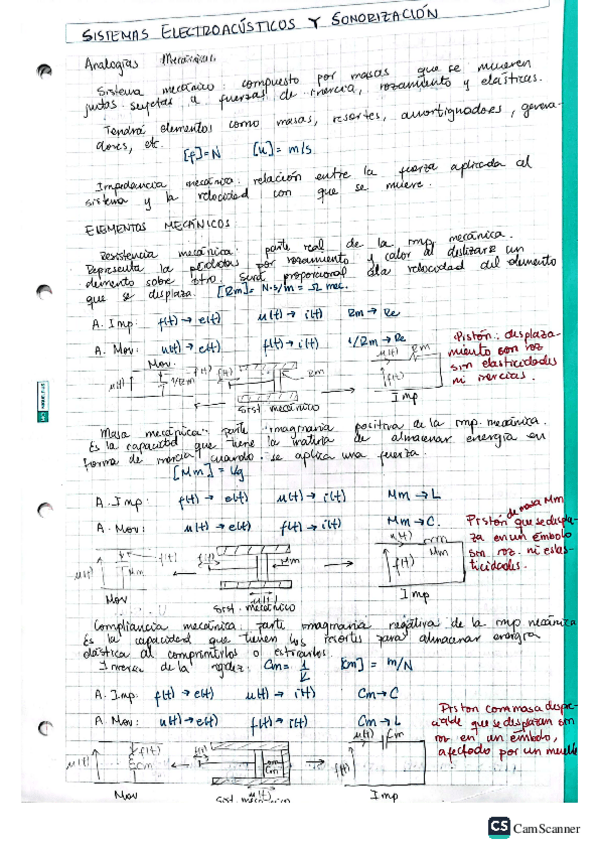 SISTEMAS ELECTROACÚSTICOS Y SONORIZACIÓN
Analogías Mecánicas.
Sistema mecánico compuesto por masas que se mueven
juntas sujetas a fuerzas de inercia, rozamiento y elásticas.
Tendrá elementos como masas, resortes, amortiguadores, genera-
dores, etc.
[f]=N [u]= m/s
Impedancia mecánica: relación entre la fuerza aplicada al
sistema y la velocidad con que se mueve.
ELEMENTOS MECÁNICOS
Resistencia mecánica: parte real de la imp mecánica.
Representa la pérdidas por rozamiento y calor al deslizarse un
elemento sobre otro. Será proporcional a la velocidad del elemento
que se desplaza. [Rm]= N·s/m = Ω mec.
A. Imp: f(t) → e(t) u(t) → i(t) Rm → Re
A. Mov: u(t) → e(t) f(t) → i(t) 1/Rm → Re
Pistón: desplaza-
miento con roz
sin elasticidades
ni inercias.
Mov. u(t) 1/Rm f(t) f(t) Rm u(t) Rm f(t)
Sist mecánico Imp
Masa mecánica: parte imaginaria positiva de la imp. mecánica.
Es la capacidad que tiene la materia de almacenar energía en
forma de inercia cuando se aplica una fuerza.
[Mm] = Kg
A. Imp: f(t) → e(t) u(t) → i(t) Mm → L
A. Mov: u(t) → e(t) f(t) → i(t) Mm → C.
Pistón de masa Mm
que se despla-
za en un émbolo
sin roz. ni elas-
ticidades.
u(t) Mm f(t) f(t) Mm u(t) u(t) Mm f(t)
Mov Sist. mecánico Imp
Compliancia mecánica: parte imaginaria negativa de la imp mecánica
Es la capacidad que tienen los resortes para almacenar energía
elástica al comprimirlos o estirarlos.
Inversa de la rigidez: Cm= 1/K [Cm] = m/N
A. Imp: f(t) → e(t) u(t) → i(t) Cm → C
A. Mov: u(t) → e(t) f(t) → i(t) Cm → L
Piston con masa despre-
ciable que se desplazan sin
roz en un émbolo,
afectado por un muelle
u(t) f(t) Cm f(t) Cm u(t) u(t) Cm f(t)
Mov Sist mecánico Imp
CS CamScanner